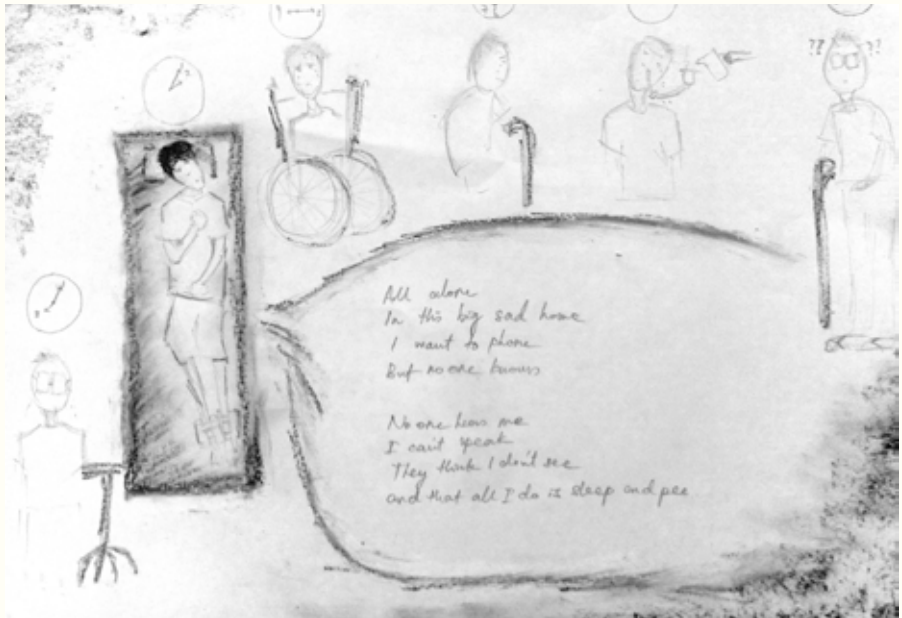 ??
??
All alone
In this big sad home
I want to phone
But no one knows
No one hears me
I can't speak
They think I don't see
and that all I do is sleep and pee